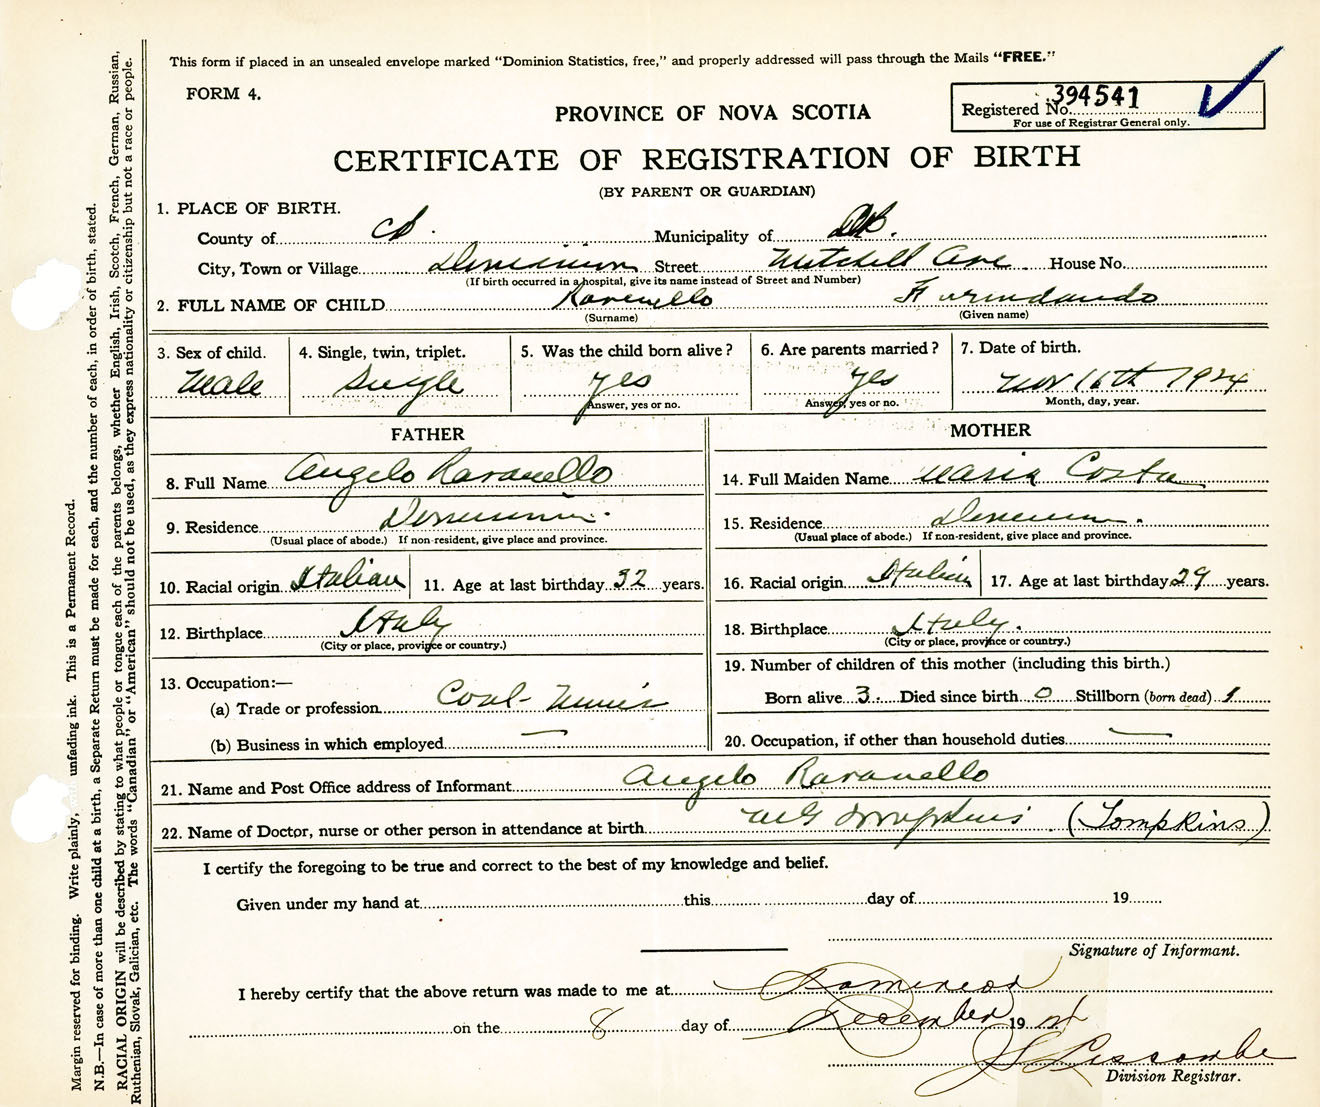 This form if placed in an unsealed envelope marked “Dominion Statistics, free,” and properly addressed will pass through the Mails “FREE.”
FORM 4.
PROVINCE OF NOVA SCOTIA
Registered No. 394541
For use of Registrar General only.
CERTIFICATE OF REGISTRATION OF BIRTH
(BY PARENT OR GUARDIAN)
1. PLACE OF BIRTH.
County of CB. Municipality of CB.
City, Town or Village Dominion Street Mitchell Ave House No.
(If birth occurred in a hospital, give its name instead of Street and Number)
2. FULL NAME OF CHILD Ravanello Furmdando
(Surname) (Given name)
3. Sex of child. 4. Single, twin, triplet. 5. Was the child born alive? 6. Are parents married? 7. Date of birth.
Male Single yes yes Nov 16th 1924
Answer, yes or no. Answer, yes or no. Month, day, year.
FATHER MOTHER
8. Full Name Angelo Ravanello 14. Full Maiden Name Maria Costa
9. Residence Dominion. 15. Residence Dominion.
(Usual place of abode.) If non-resident, give place and province. (Usual place of abode.) If non-resident, give place and province.
10. Racial origin Italian 11. Age at last birthday 32 years. 16. Racial origin Italian 17. Age at last birthday 29 years.
12. Birthplace Italy 18. Birthplace Italy.
(City or place, province or country.) (City or place, province or country.)
13. Occupation:— 19. Number of children of this mother (including this birth.)
(a) Trade or profession Coal-Miner Born alive 3. Died since birth 0 Stillborn (born dead) 1
(b) Business in which employed 20. Occupation, if other than household duties
21. Name and Post Office address of Informant Angelo Ravanello
22. Name of Doctor, nurse or other person in attendance at birth MG Tompkins (Tompkins)
I certify the foregoing to be true and correct to the best of my knowledge and belief.
Given under my hand at this day of 19
Signature of Informant.
I hereby certify that the above return was made to me at Dominion
on the 8 day of December 1924
J S Liscombe
Division Registrar.
Margin reserved for binding. Write plainly, unfading ink. This is a Permanent Record.
N.B.—In case of more than one child at a birth, a Separate Return must be made for each, and the number of each, in order of birth, stated.
RACIAL ORIGIN will be described by stating to what people or tongue each of the parents belongs, whether English, Irish, Scotch, French, German, Russian,
Ruthenian, Slovak, Galician, etc. The words “Canadian” or “American” should not be used, as they express nationality or citizenship but not a race or people.